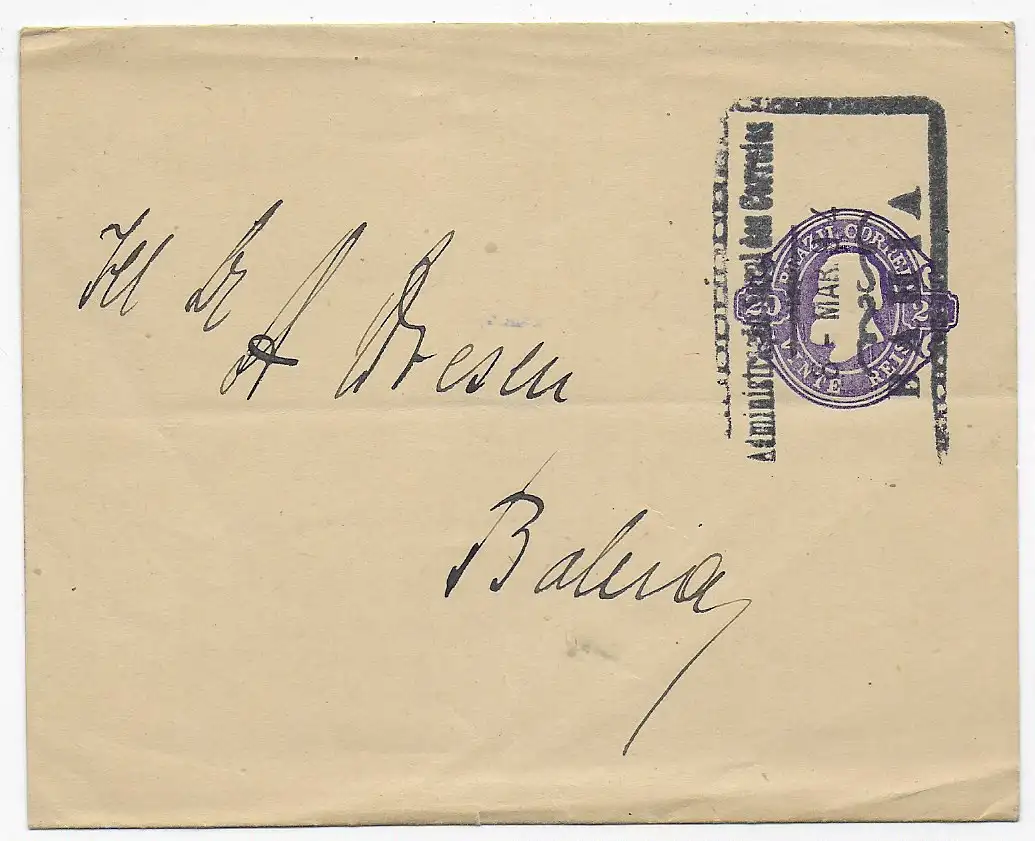 Ill Sr
A Dresen
Bahia
Administração Geral dos Correios
MAR.
BAHIA
BRAZIL CORREIO
20 20
VINTE REIS